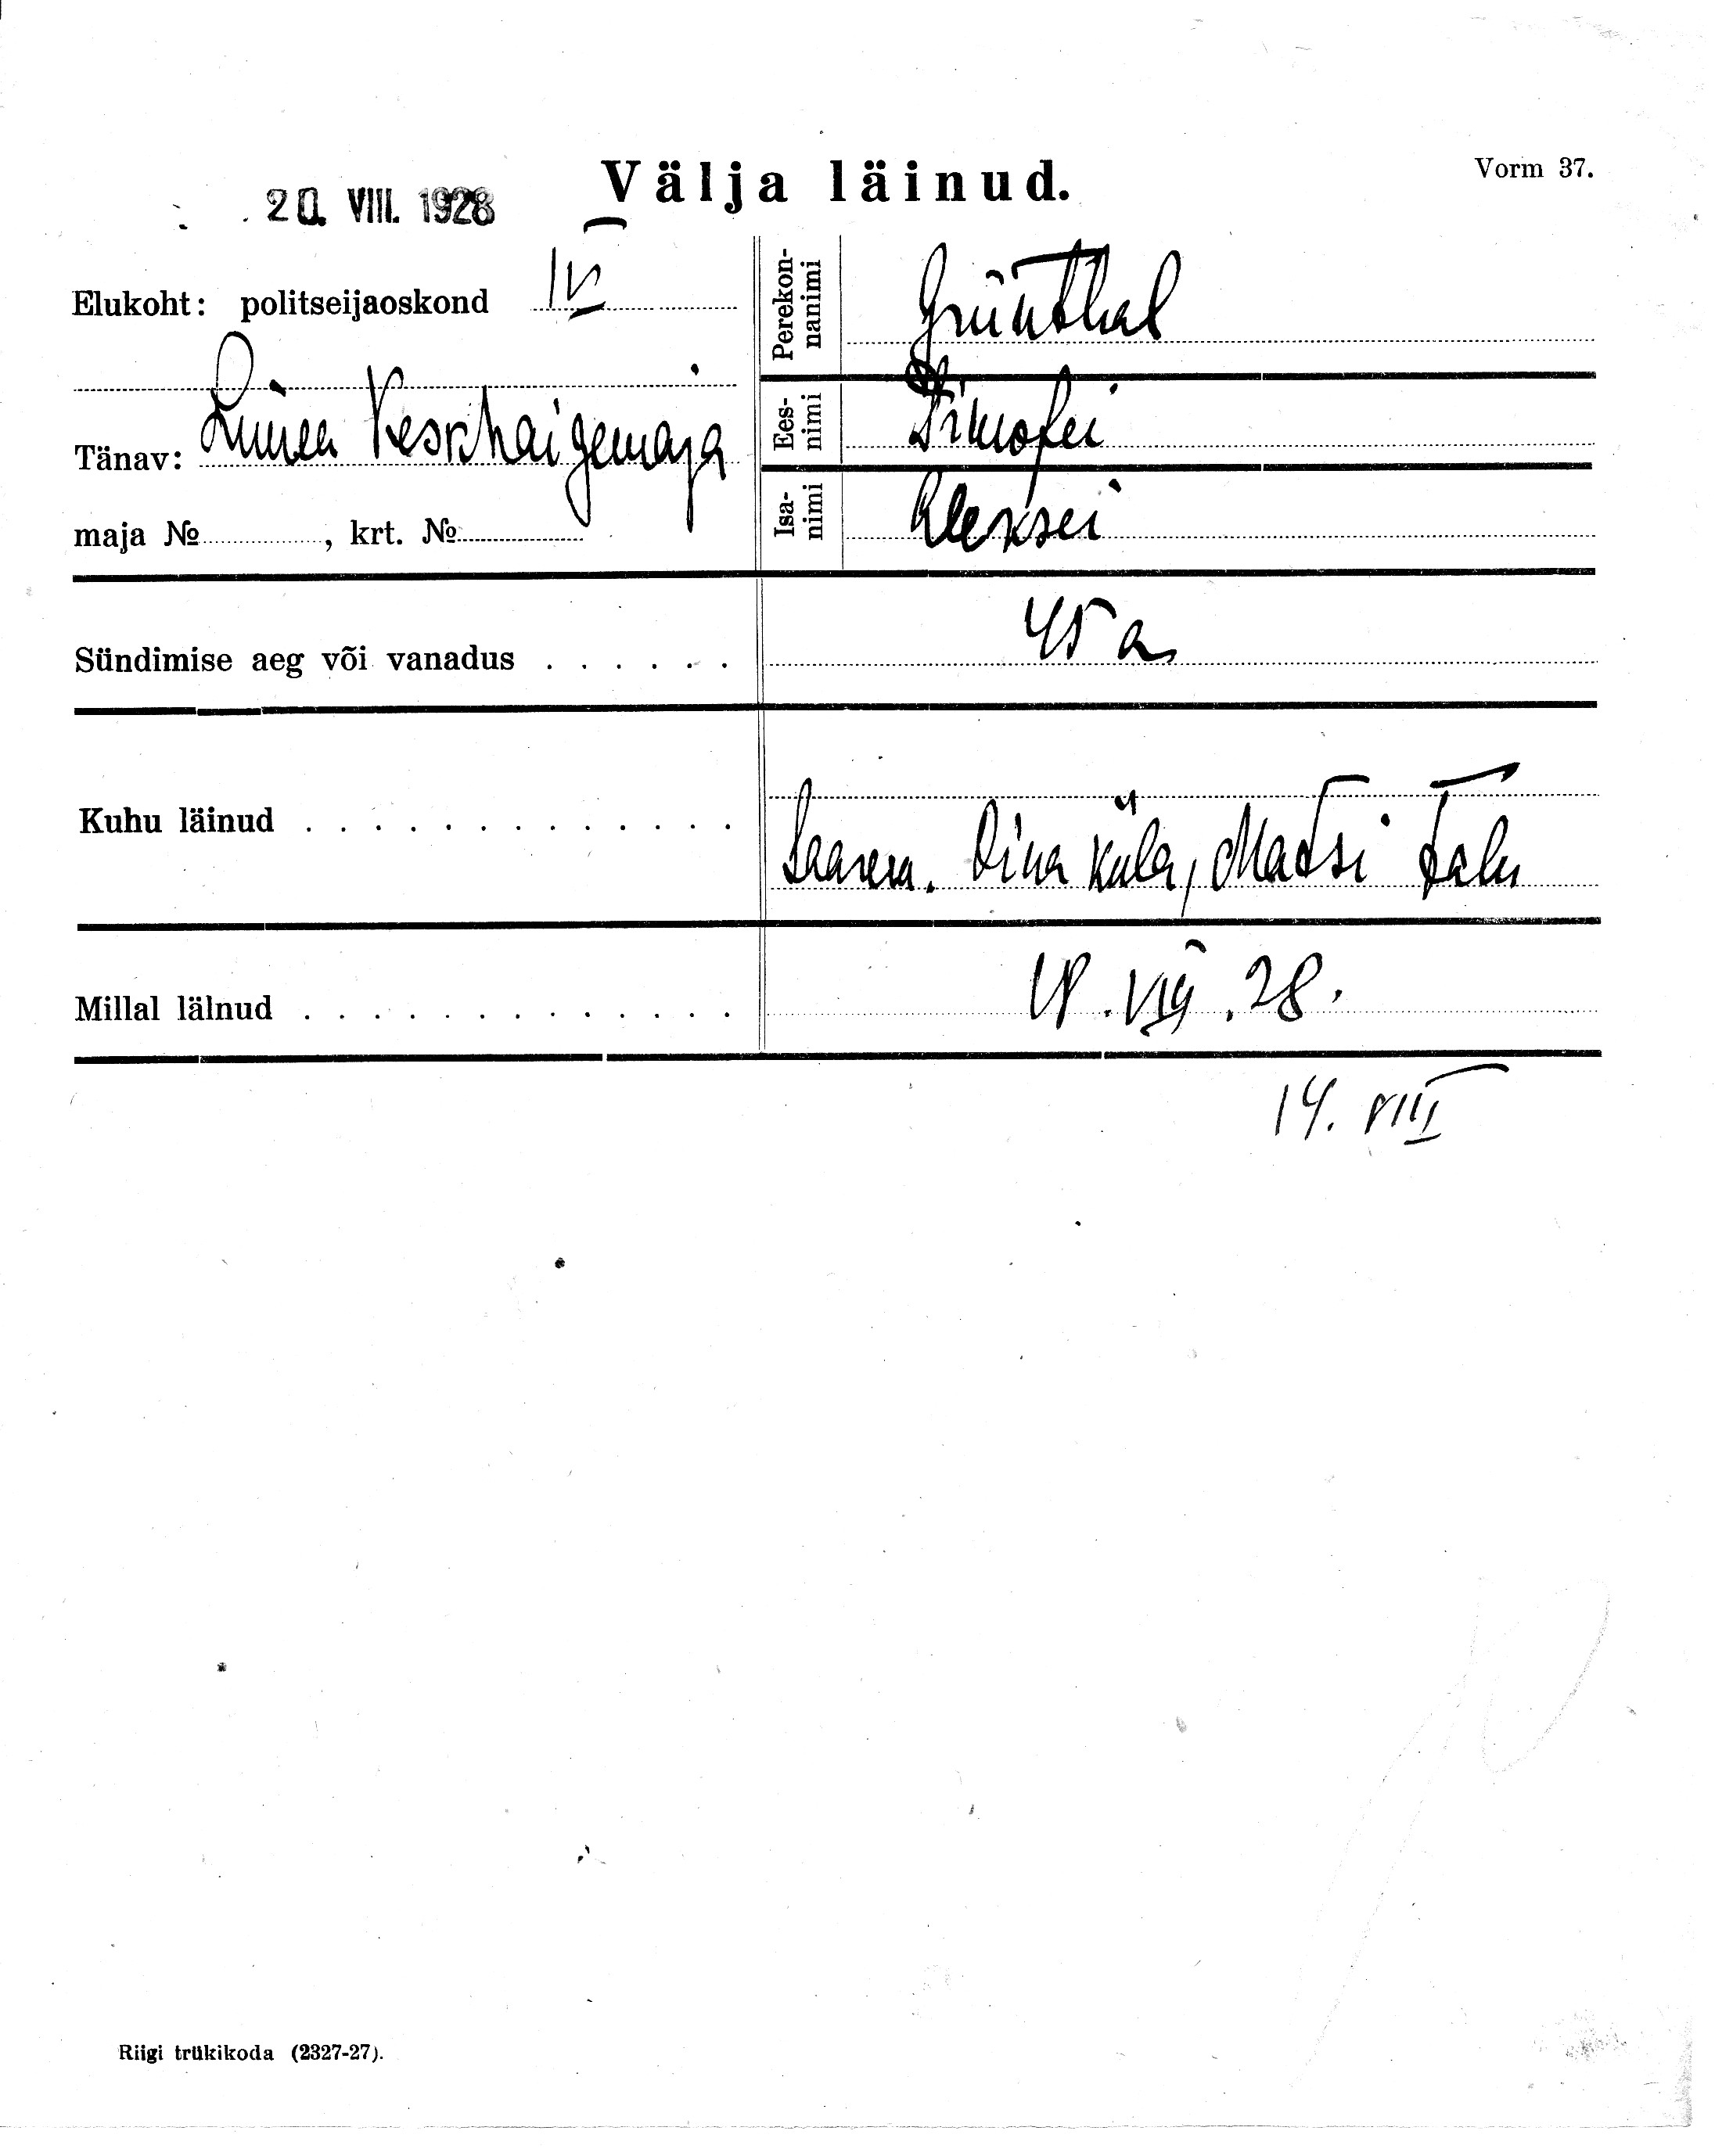 Välja läinud.
Vorm 37.
20. VIII. 1928
Elukoht: politseijaoskond IV
Tänav: Linna Keskhaigemaja
maja № , krt. №
Perekonnanimi Grünthal
Eesnimi Timofei
Isanimi Aleksei
Sündimise aeg või vanadus . . . . . . 45 a
Kuhu läinud . . . . . . . . . . . . . küla, Matsi talu
Millal läinud . . . . . . . . . . . . . VIII. 28.
14. VIII
Riigi trükikoda (2327-27).